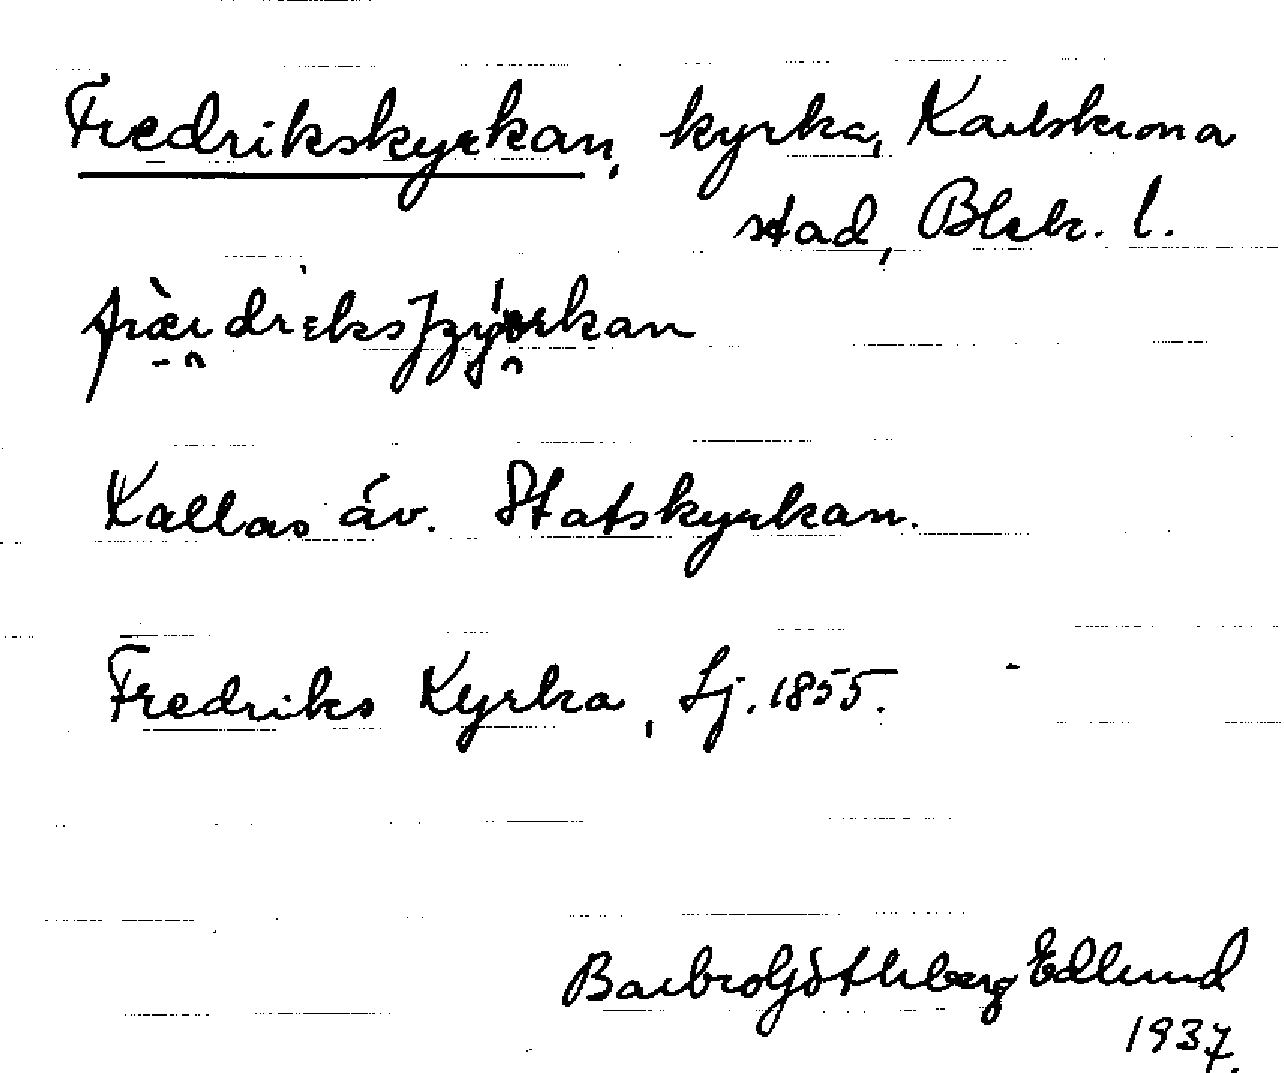 Fredrikskyrkan, kyrka, Karlskrona
stad, Blek. l.
Kallas äv. Statskyrkan.
Fredriks Kyrka, Lj. 1855.
Barbro Götheberg Edlund
1937.